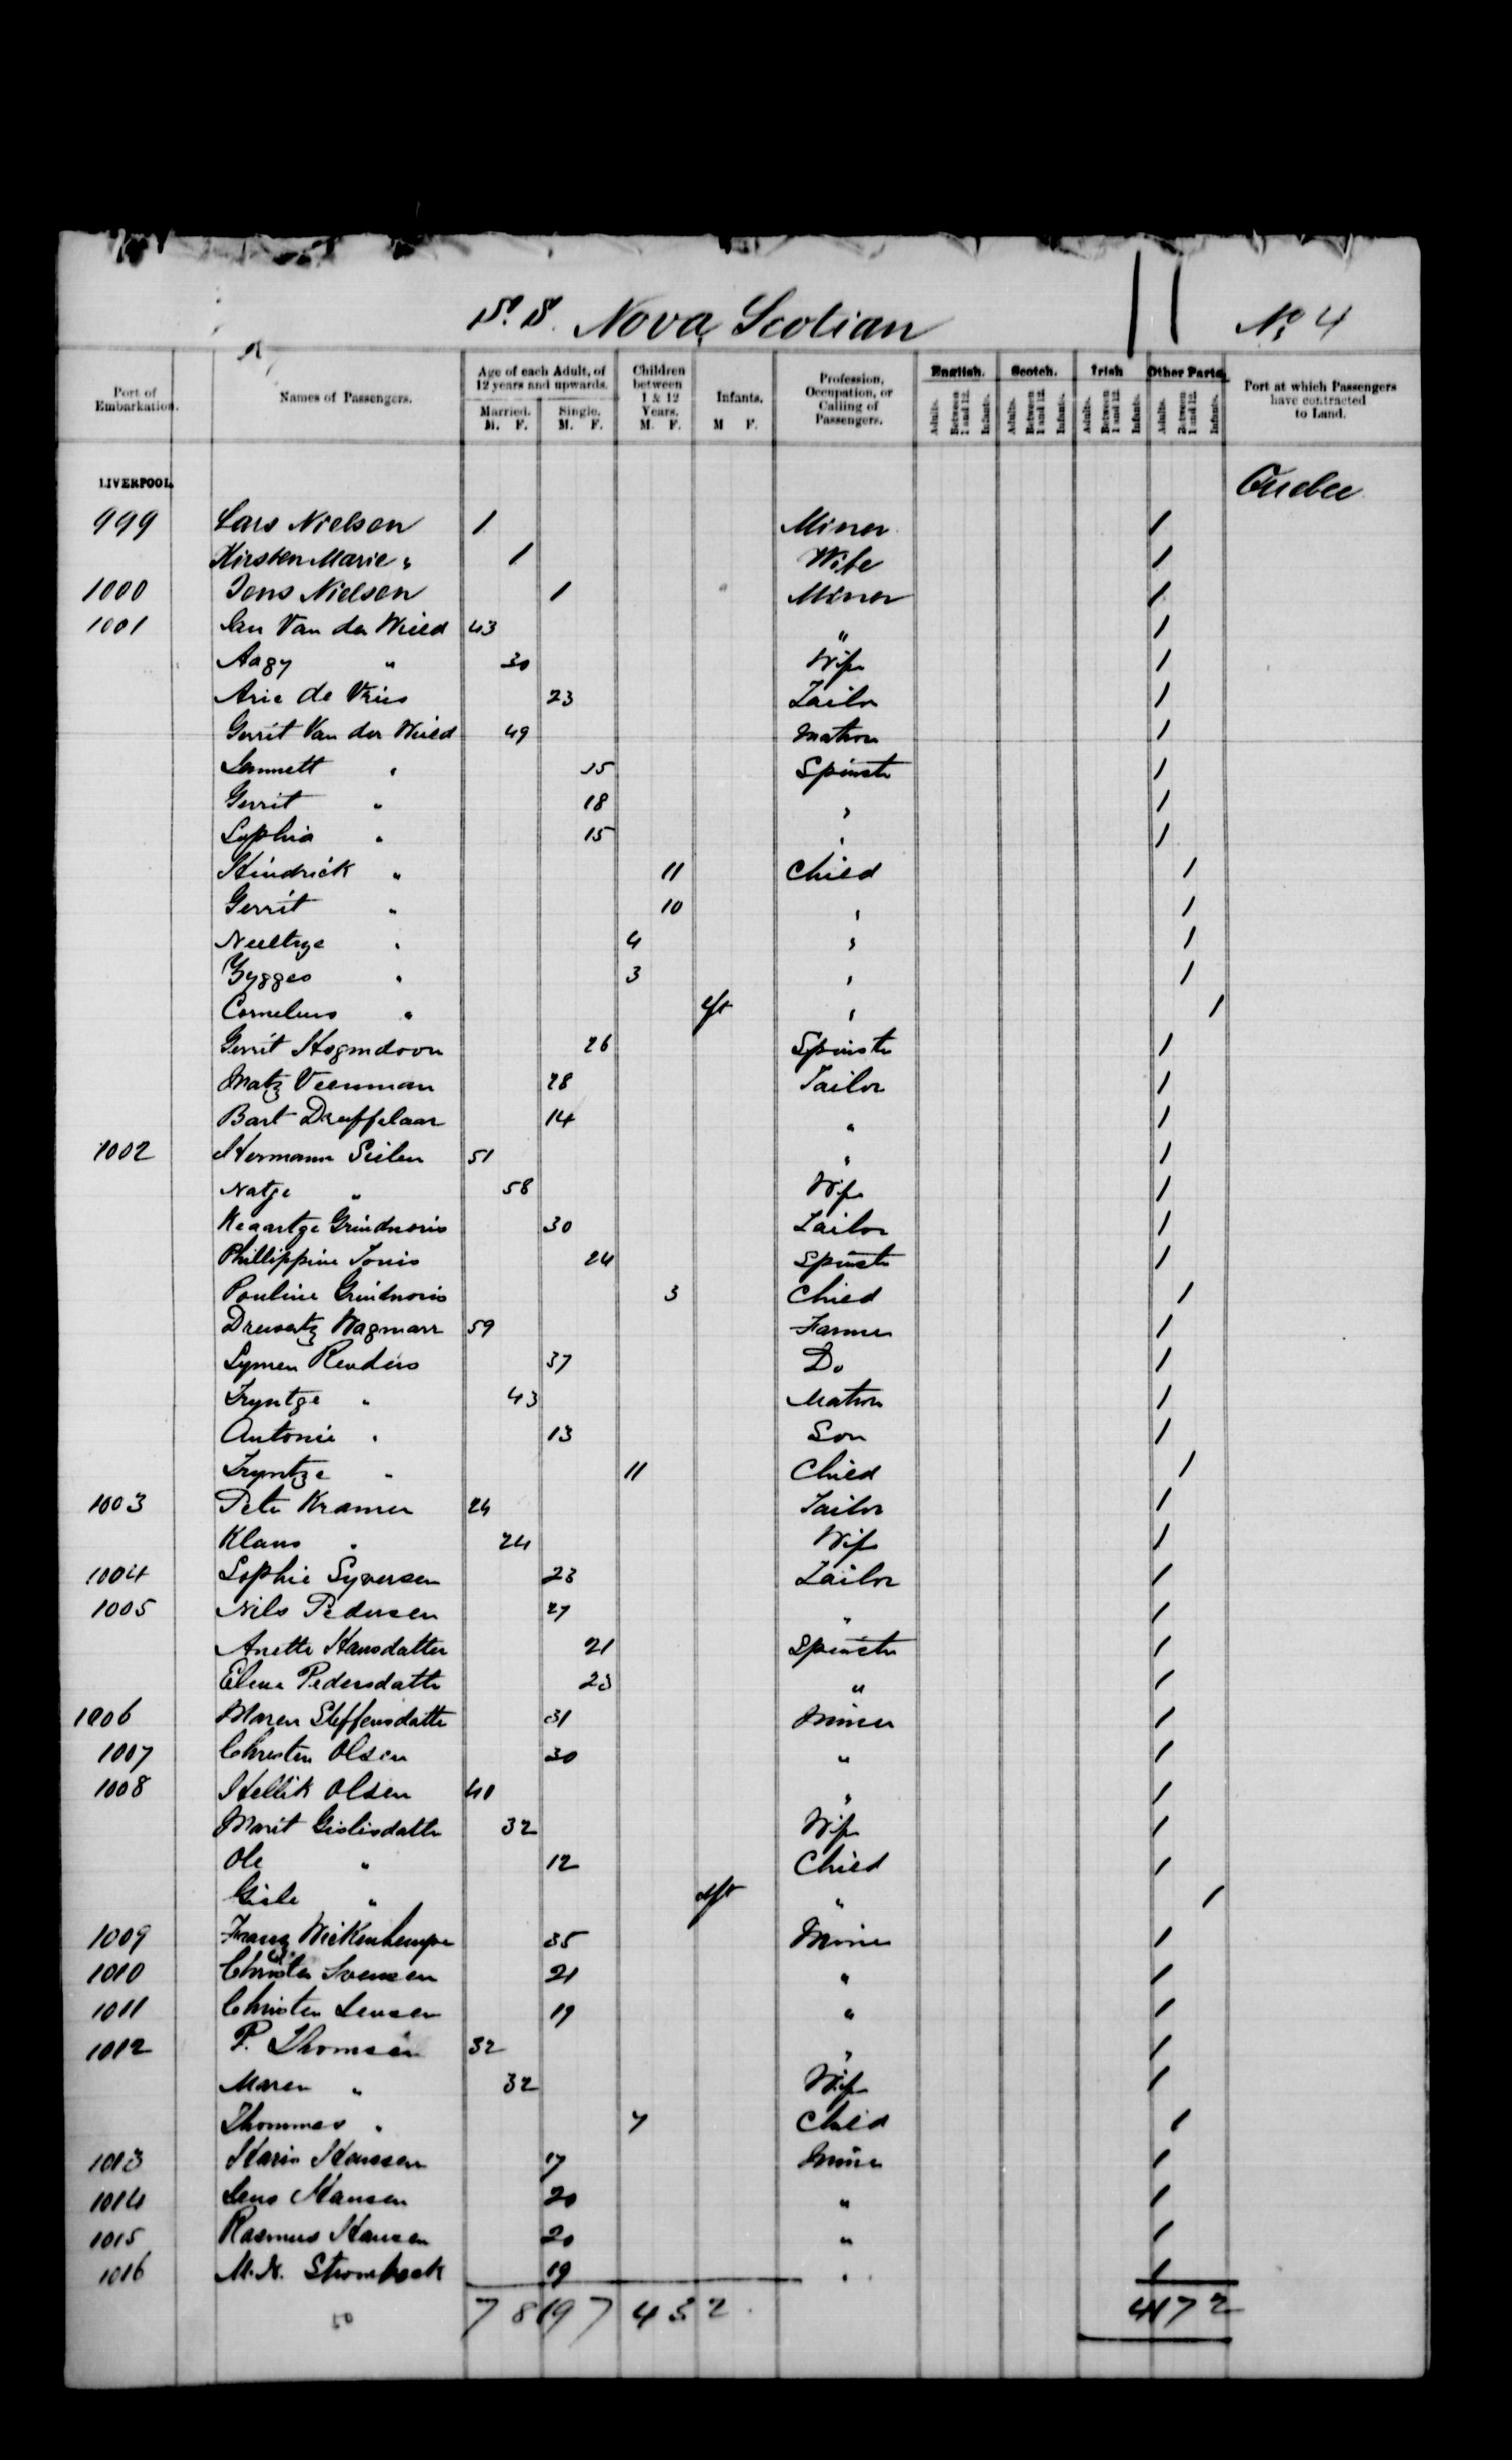 S.S. Nova Scotian
No 4
Port of Embarkation.
Names of Passengers.
Age of each Adult, of 12 years and upwards.
Married. M. F.
Single. M. F.
Children between 1 & 12 Years. M. F.
Infants. M F.
Profession, Occupation, or Calling of Passengers.
English. Adults. Between 1 and 12. Infants.
Scotch. Adults. Between 1 and 12. Infants.
Irish Adults. Between 1 and 12. Infants.
Other Parts. Adults. Between 1 and 12. Infants.
Port at which Passengers have contracted to Land.
LIVERPOOL. Quebec
999 Lars Nielsen 1 Miner 1
Kirsten Marie " 1 Wife 1
1000 Jens Nielsen 1 Miner 1
1001 Jan Van der Wield 43 " 1
Aagy " 30 Wife 1
Arie de Vries 23 Tailor 1
Gerrit Van der Wield 49 Matron 1
Jannett " 15 Spinster 1
Gerrit " 18 " 1
Sophia " 15 " 1
Hindrick " 11 Child 1
Gerrit " 10 " 1
Neeltye " 4 " 1
Gygges " 3 " 1
Cornelius " Inft " 1
Gerrit Hogmdoorn 26 Spinster 1
Matz Veenman 28 Tailor 1
Bart Druffelaar 14 " 1
1002 Hermann Seilen 51 " 1
Natje " 58 Wife 1
Keaartge Grindnoris 30 Tailor 1
Phillippine Jonis 24 Spinster 1
Pauline Grindnoris 3 Child 1
Wagmarr 59 Farmer 1
Symen Renders 37 Do 1
Tryntge " 43 Matron 1
Antonie " 13 Son 1
Tryntge " 11 Child 1
1003 Pete Kramer 24 Tailor 1
Klaus " 24 Wife 1
1004 Sophie Syversen 23 Tailor 1
1005 Nils Pedersen 27 " 1
Anette Hansdatter 21 Spinster 1
Elene Pedersdatter 23 " 1
1006 Maren Steffensdatter 31 Miner 1
1007 Christen Olsen 30 " 1
1008 Hellik Olsen 40 " 1
Marit Gislisdatter 32 Wife 1
Ole " 12 Child 1
Gisle " Inft " 1
1009 Franz Wickenhempe 35 Miner 1
1010 Christen Svensen 21 " 1
1011 Christen Jensen 19 " 1
1012 P. Thomsen 32 " 1
Maren " 32 Wife 1
Thommas " 7 Child 1
1013 Haris Hanssen 17 Miner 1
1014 Jens Hansen 20 " 1
1015 Rasmus Hansen 20 " 1
1016 M.N. Strombeck 19 " 1
50 7 8 19 7 4 3 2 41 7 2